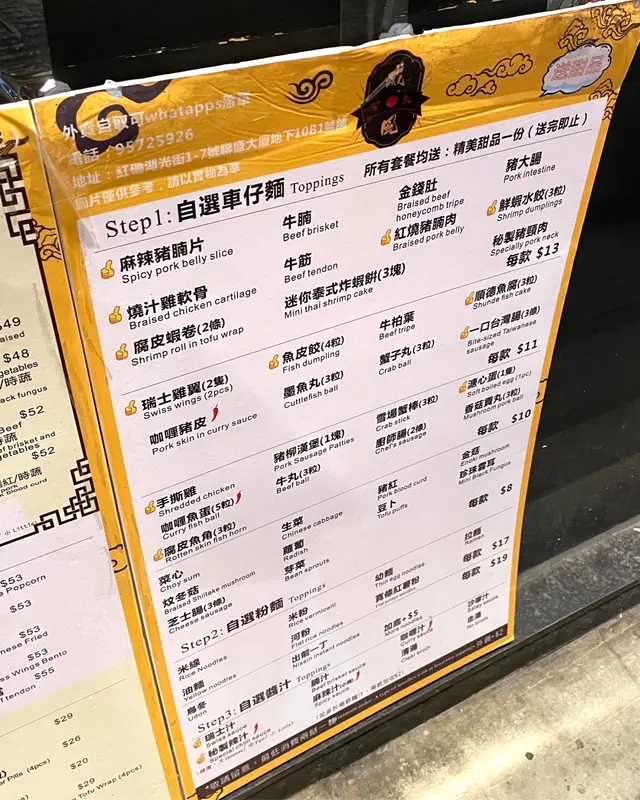 外賣自取可whatapps落單
電話：95725926
地址：紅磡湖光街1-7號聯盛大廈地下10B1號舖
圖片僅供參考，請以實物為準
送甜品
風
所有套餐均送：精美甜品一份（送完即止）
Step1:自選車仔麵 Toppings
麻辣豬腩片
Spicy pork belly slice
牛腩
Beef brisket
金錢肚
Braised beef honeycomb tripe
豬大腸
Pork intestine
燒汁雞軟骨
Braised chicken cartilage
牛筋
Beef tendon
紅燒豬腩肉
Braised pork belly
鮮蝦水餃(3粒)
Shrimp dumplings
腐皮蝦卷(2條)
Shrimp roll in tofu wrap
迷你泰式炸蝦餅(3塊)
Mini thai shrimp cake
秘製豬頸肉
Specially pork neck
每款 $13
瑞士雞翼(2隻)
Swiss wings (2pcs)
魚皮餃(4粒)
Fish dumpling
牛柏葉
Beef tripe
順德魚腐(3粒)
Shunde fish cake
咖喱豬皮
Pork skin in curry sauce
墨魚丸(3粒)
Cuttlefish ball
蟹子丸(3粒)
Crab ball
一口台灣腸(3條)
Bite-sized Taiwanese sausage
每款 $11
手撕雞
Shredded chicken
豬柳漢堡(1塊)
Pork Sausage Patties
雪場蟹棒(3粒)
Crab stick
溏心蛋(1隻)
Soft boiled egg (1pc)
咖喱魚蛋(5粒)
Curry fish ball
牛丸(3粒)
Beef ball
廚師腸(2條)
Chef's sausage
香菇貢丸(3粒)
Mushroom pork ball
腐皮魚角(3粒)
Rotten skin fish horn
每款 $10
菜心
Choy sum
生菜
Chinese cabbage
豬紅
Pork blood curd
金菇
Enoki mushroom
炆冬菇
Braised Shiitake mushroom
蘿蔔
Radish
豆卜
Tofu puffs
珍珠雲耳
Mini Black Fungus
芝士腸(3條)
Cheese sausage
芽菜
Bean sprouts
每款 $8
Step2:自選粉麵 Toppings
米線
Rice Noodles
米粉
Rice vermicelli
幼麵
Thin egg noodles
拉麵
Raman
油麵
Yellow noodles
河粉
Flat rice noodles
寬條紅薯粉
每款 $17
烏冬
Udon
出前一丁
Nissin instant noodles
加底+$5
More noodles
每款 $19
Step3:自選醬汁 Toppings
瑞士汁
Swiss sauce
腩汁
Beef brisket sauce
咖喱汁
Curry sauce
沙嗲汁
Satay sauce
秘製辣汁
Special chili sauce
麻辣汁
Spicy sauce
清湯
Clear broth
走湯
No broth
$49
$48
$52
$52
black fungus
Beef
beef brisket and
vegetables
$53
Popcorn
$53
$53
$53
Wings Bento
$55
$29
$26
$20
$29
Tofu Wrap (4pcs)
$22